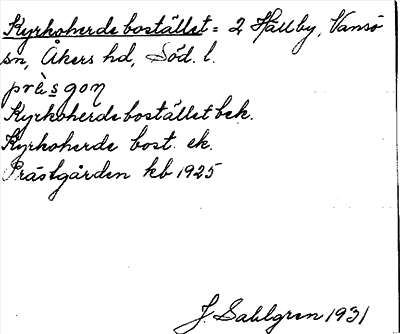 Kyrkoherdebostället = 2 Hällby, Vansö
sn, Åkers hd, Söd. l.
prè̀sgoɳ
Kyrkoherdebostället bek.
Kyrkoherde bost. ek.
Prästgården kb 1925
J. Sahlgren 1931